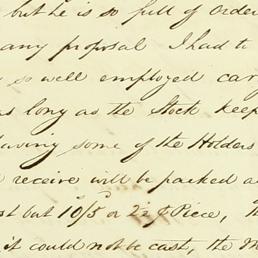 but he is so full of Order
any proposal I had to
so well employed car
as long as the Stock keep
having some of the Holders
receive will be packed a
but 10/5 or 2 Piece, Th
it could not be cast, the M